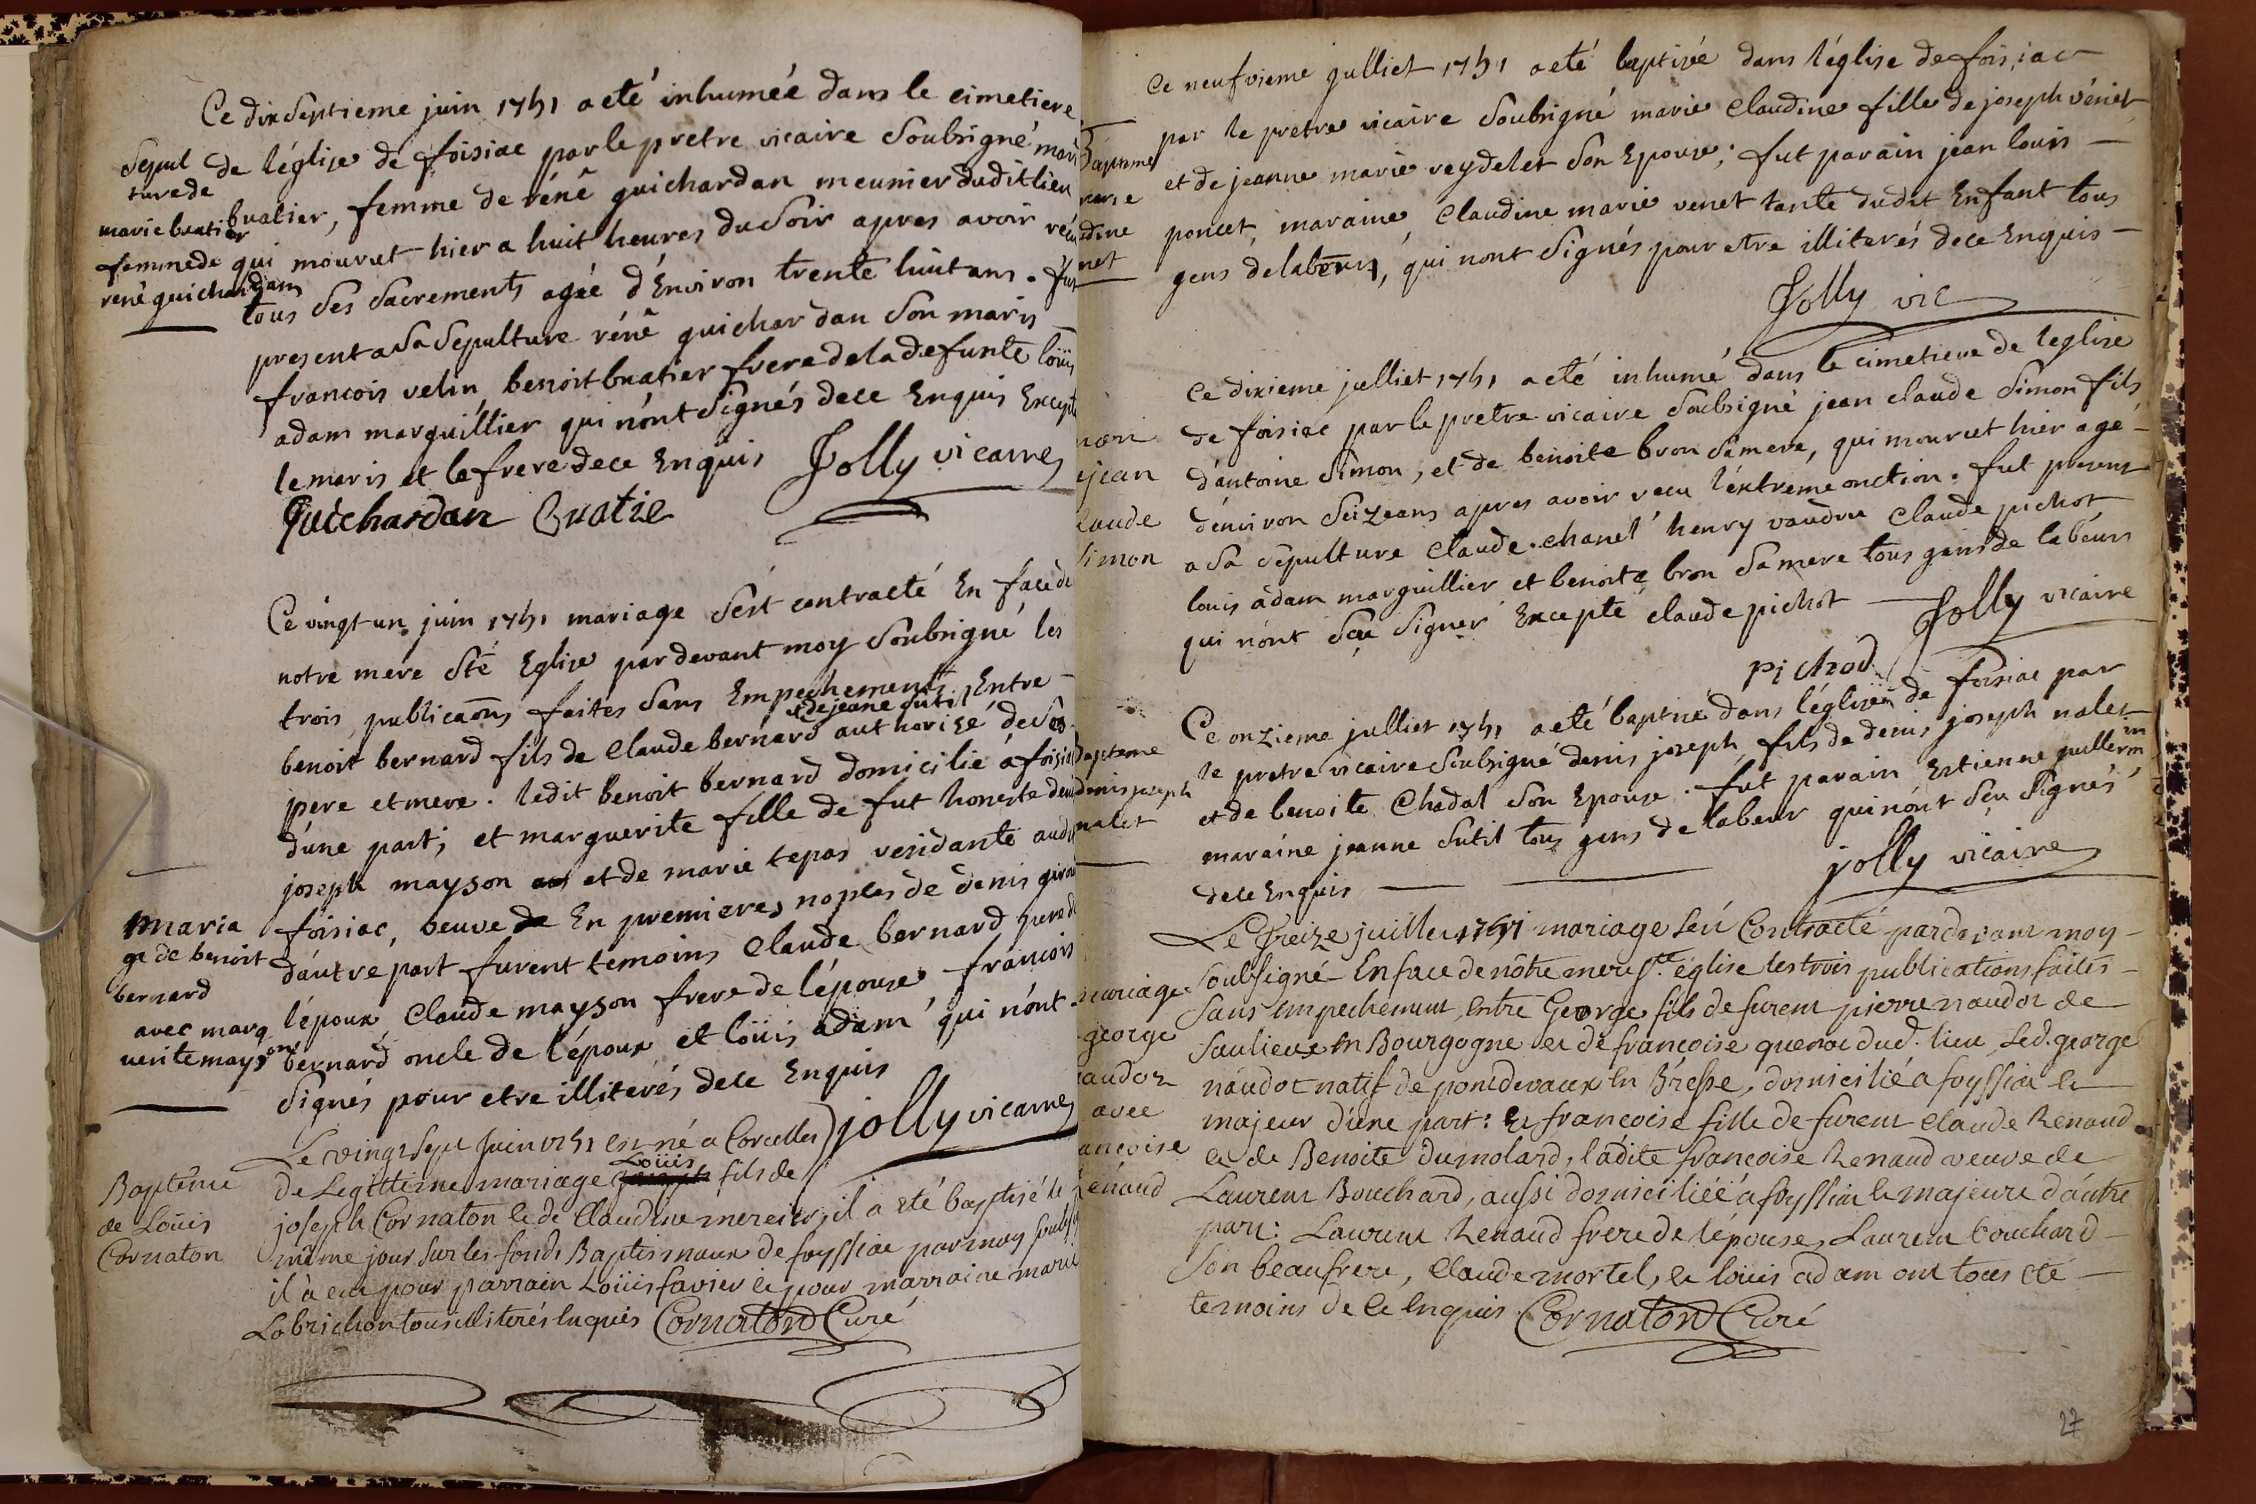 Ce dix Septieme juin 1751 a eté inhumée dans le cimetiere
de l'église de foisiac par le pretre vicaire Soubsigné mari
Sepul
ture de
marie buatier
femme de
rené guichardan
buatier, femme de réné guichardan meunier dudit lieu
qui mourut hier a huit heures du Soir apres avoir récu
tous Ses Sacrements agée d'Environ trente huit ans. fut
present a Sa Sepulture réné guichardan Son maris
francois velin, benoit buatier frere de la defunte loüis
adam marguillier qui n'ont Signés de ce Enquis Excepté
le maris et le frere de ce Enquis Jolly vicaire
Guichardan Buatie
Ce vingt un juin 1751 mariage S'est contracté En face de
notre mere Ste Eglise par devant moy Soubsigné les
trois publicaõns faites Sans Empechements Entre
et de jeane sutil
benoit bernard fils de Claude bernard authorizé de Ses
pere et mere. ledit benoit bernard domicilié a foisia
d'une part; et marguerite fille de fut honeste
joseph mayson et de marie tepas residante aud
foisiac, veuve En premieres noples de denis
maria
ge de benoit
bernard
avec marg
uerite mayson
d'autre part furent temoins Claude bernard pere de
l'époux Claude mayson frere de l'épouse francois
bernard oncle de l'époux et loüis adam qui n'ont
Signés pour etre illiterés de ce Enquis
jolly vicaire
Le vingt Sept Juin 1751 est né a Corcelles
Loüis
de Legitime mariage fils de
Baptême
de Loüis
Cornaton
joseph Cornaton et de Claudine mercier, il a eté baptisé le
même jour Sur les fonds Baptismaux de foyssiac par moy soubs
il à eu pour parrain Loüis favier et pour marraine marie
Lobrichon tous illiterés Enquis Cornaton Curé
Ce neufvieme julliet 1751 a eté baptisée dans l'église de foisiac
par le pretre vicaire Soubsigné marie Claudine fille de joseph vénet
Baptme
marie
dine
net
et de jeanne marie reydelet Son Epouse; fut parain jean louis
poncet, maraine, Claudine marie venet tante dudit Enfant tous
gens de labeurs, qui nont Signés pour etre illiterés de ce Enquis
Jolly vic
Ce dixieme julliet 1751 a eté inhumé dans le cimetiere de leglise
de foisiac par le pretre vicaire Soubsigné jean claude Simon fils
d'antoine Simon, et de benoite bron Sa mere, qui mourut hier agé
jean
laude
Simon
d'environ Seize ans apres avoir recu l'extreme onction. fut present
a Sa Sepulture Claude chanel henry vaudru Claude pichot
louis adam marguillier et benoite bron Sa mere tous gens de labeurs
qui n'ont Sçu Signer Excepté claude pichot Jolly vicaire
pichod
Ce onzieme julliet 1751 a eté baptisé dans l'église de foisiac par
le pretre vicaire Soubsigné denis joseph fils de denis joseph nalet
Bapteme
denis joseph
nalet
et de benoite Chadal Son Epouse. fut parain Estienne pullerin
maraine jeanne Sutil tous gens de labeur qui n'ont Sçu Signés
de ce Enquis jolly vicaire
Le Treize juillet 1751 mariage s'est Contracté pardevant moy
soubsigné En face de nôtre mere Ste église les trois publications faites
mariage
george
naudot
avec
ancoise
renaud
Sans empechement, entre George fils de furent pierre naudot de
Saulieux En Bourgogne et de francoise quenot dud. lieu, Led. george
naudot natif de pondevaux En Bresse, domicilié a foyssiac et
majeur d'une part: Et francoise fille de furent Claude Renaud
et de Benoite Dumolard, ladite francoise Renaud veuve de
Laurent Bouchard, aussi domiciliéé a foyssiac et majeure d'autre
part: Laurent Renaud frere de l'épouse, Laurent bouchard
Son beaufrere, Claude mortel, et loüis adam ont tous eté
temoins de ce Enquis Cornaton Curé
27